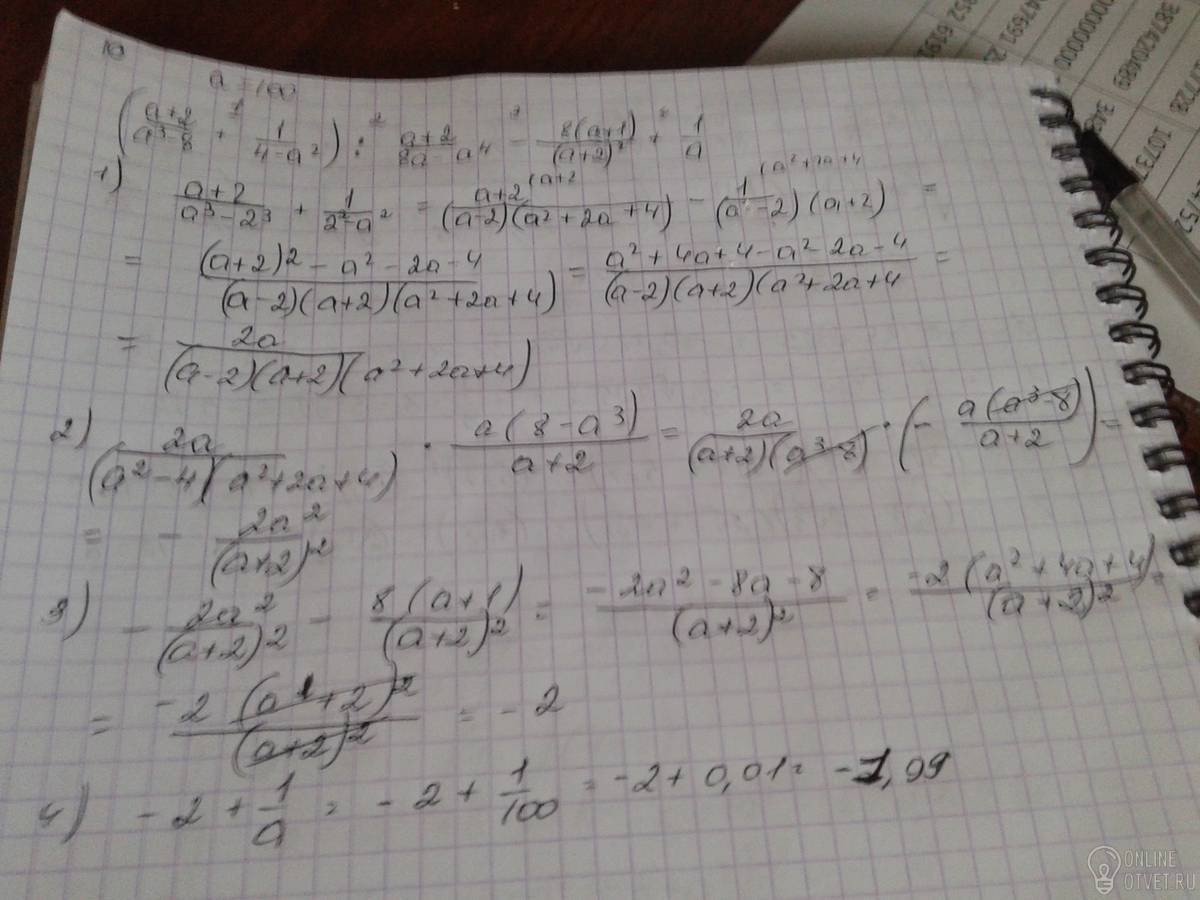 10
a = 100
((a+2)/(a³-8) + 1/(4-a²)) : (a+2)/(8a-a⁴) - 8(a+1)/(a+2)² + 1/a
1) (a+2)/(a³-2³) + 1/(2²-a²) = (a+2)/((a-2)(a²+2a+4)) (a+2 - 1/((a-2)(a+2)) (a²+2a+4 =
= ((a+2)²-a²-2a-4)/((a-2)(a+2)(a²+2a+4)) = (a²+4a+4-a²-2a-4)/((a-2)(a+2)(a²+2a+4 =
= 2a/((a-2)(a+2)(a²+2a+4))
2) 2a/((a²-4)(a²+2a+4)) · a(8-a³)/(a+2) = 2a/((a+2)(a³-8)) · (- a(a³-8)/(a+2)) =
= - 2a²/(a+2)²
3) - 2a²/(a+2)² - 8(a+1)/(a+2)² = (-2a²-8a-8)/(a+2)² = -2(a²+4a+4)/(a+2)² =
= -2(a+2)²/(a+2)² = -2
4) -2 + 1/a = -2 + 1/100 = -2 + 0,01 = -1,99
ONLINE
OTVET.RU